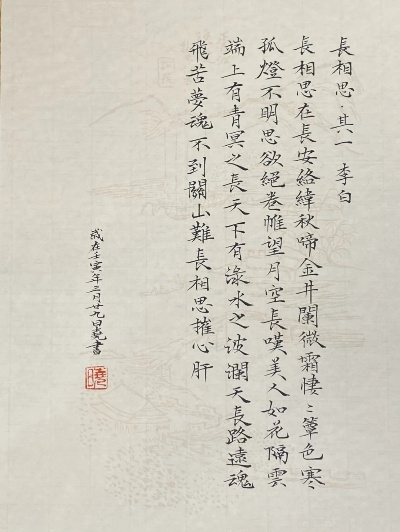 長相思·其一 李白
長相思在長安絡緯秋啼金井闌微霜悽〻簟色寒
孤燈不明思欲絕卷帷望月空長嘆美人如花隔雲
端上有青冥之長天下有淥水之波瀾天長路遠魂
飛苦夢魂不到關山難長相思摧心肝
歲在壬寅年三月廿九日堯書